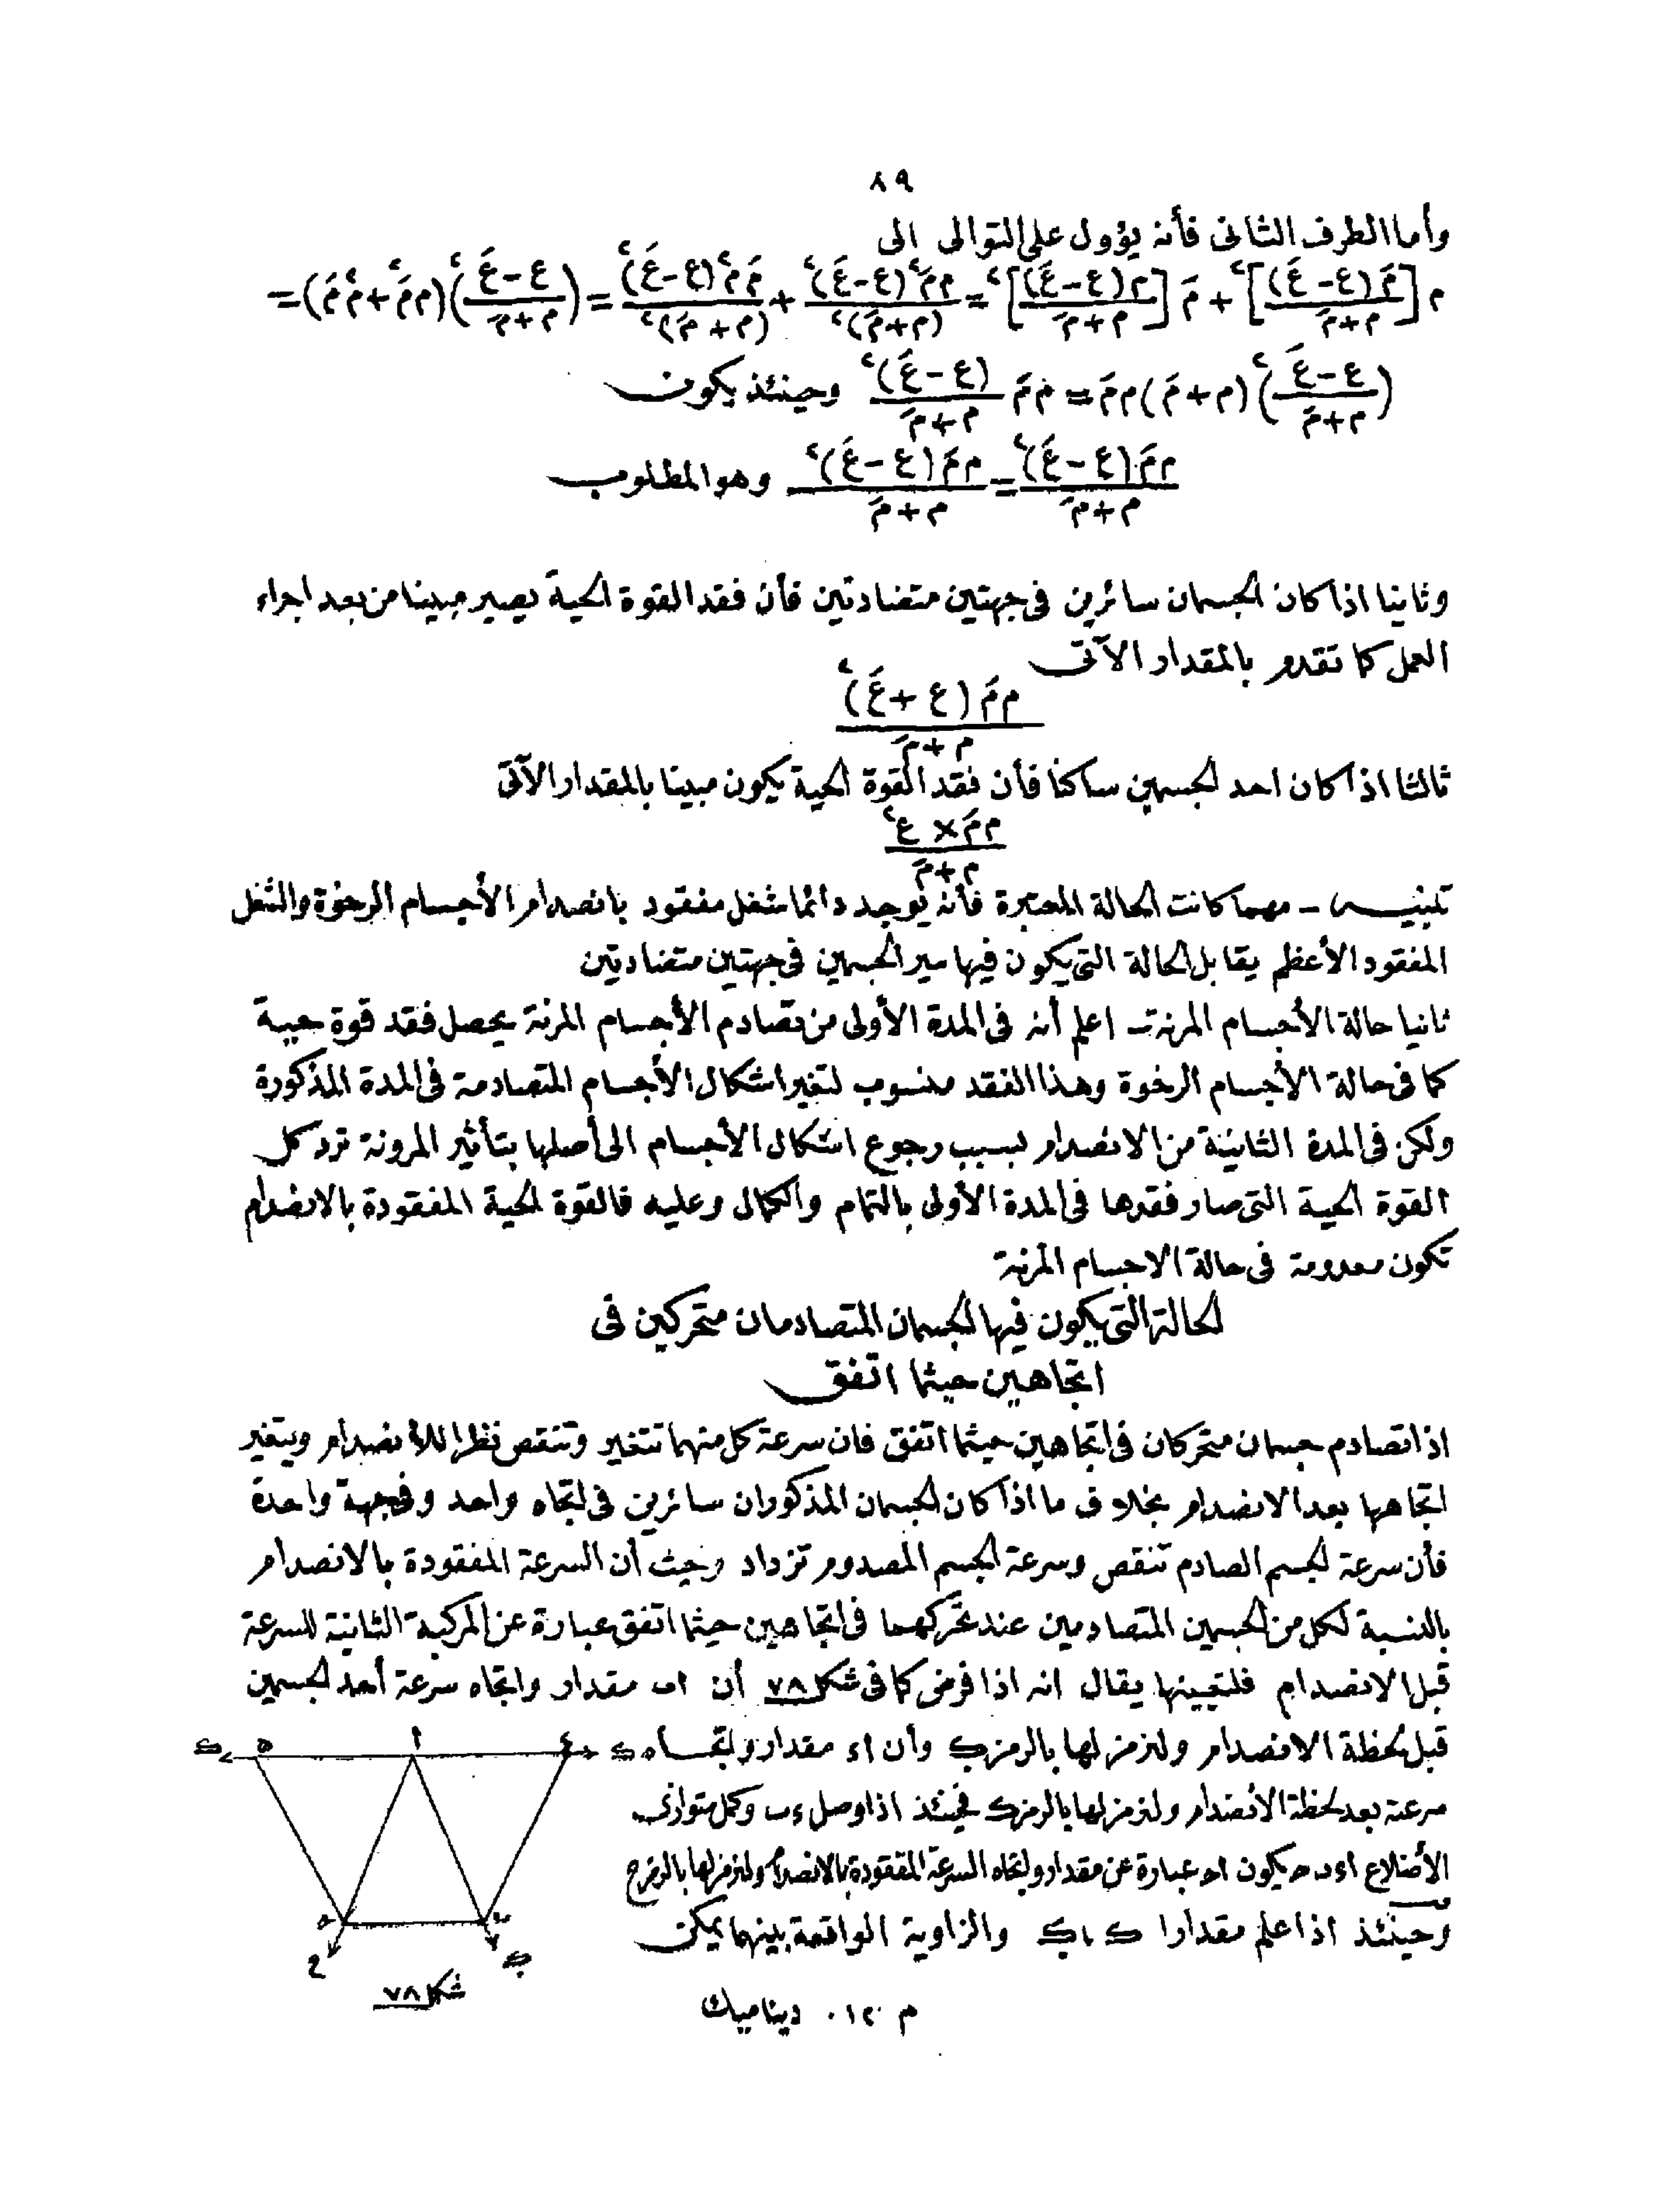 ٨٩
وأما الطرف الثانى فأنه يؤول على التوالى الى
م[مَ(ع-عَ)/م+مَ]٢ + مَ[م(ع-عَ)/م+مَ]٢ = م مَ٢(ع-عَ)٢/(م+مَ)٢ + مَ م٢(ع-عَ)٢/(م+مَ)٢ = (ع-عَ/م+مَ)٢(م مَ٢+م٢ مَ) =
(ع-عَ/م+مَ)٢(م+مَ)م مَ = م مَ (ع-عَ)٢/م+مَ وحينئذ يكون
م مَ(ع-عَ)٢/م+مَ = م مَ(ع-عَ)٢/م+مَ وهو المطلوب
وثانيا اذا كان الجسمان سائرين فى جهتين متضادتين فأن فقد القوة الحية يصير مبينا من بعد اجراء
العمل كما تقدم بالمقدار الآتى
م مَ(ع+عَ)٢/م+مَ
ثالثا اذا كان احد الجسمين ساكنا فأن فقد القوة الحية يكون مبينا بالمقدار الآتى
م مَ×ع٢/م+مَ
تنبيه - مهما كانت الحالة المعتبرة فأنه يوجد دائما شغل مفقود بانصدام الأجسام الرخوة والشغل
المفقود الأعظم يقابل الحالة التى يكون فيها سير الجسمين فى جهتين متضادتين
ثانيا حالة الأجسام المرنة - اعلم أنه فى المدة الأولى من تصادم الأجسام المرنة يحصل فقد قوة حية
كما فى حالة الأجسام الرخوة وهذا الفقد منسوب لتغير اشكال الأجسام المتصادمة فى المدة المذكورة
ولكن فى المدة الثانية من الانصدام لسبب رجوع اشكال الأجسام الى أصلها بتأثير المرونة ترد كل
القوة الحية التى صار فقدها فى المدة الأولى بالتمام والكمال وعليه فالقوة الحية المفقودة بالانصدام
تكون معدومة فى حالة الاجسام المرنة
الحالة التى يكون فيها الجسمان المتصادمان متحركين فى
اتجاهين حيثما اتفق
اذا تصادم جسمان متحركان فى اتجاهين حيثما اتفق فان سرعة كل منهما تتغير وتنقص نظرا للانصدام ويتغير
اتجاهها بعد الانصدام بخلاف ما اذا كان الجسمان المذكوران سائرين فى اتجاه واحد وفى جهة واحدة
فأن سرعة الجسم الصادم تنقص وسرعة الجسم المصدوم تزداد وحيث أن السرعة المفقودة بالانصدام
بالنسبة لكل من الجسمين المتصادمين عند تحركهما فى اتجاهين حيثما اتفق عبارة عن المركبة الثانية للسرعة
قبل الانصدام فلتعيينها يقال انه اذا فرض كما فى شكل ٧٨ أن اب مقدار واتجاه سرعة أحد الجسمين
قبل لحظة الانصدام ولنرمز لها بالرمز وأن اء مقدار واتجاه
سرعته بعد لحظة الانصدام ولنرمز لها بالرمز ك فحينئذ اذا وصل ءب وكمل متوازى
الأضلاع اءبح يكون اح عبارة عن مقدار واتجاه السرعة المفقودة بالانصدام ولنرمز لها بالرمز ح
وحينئذ اذا علم مقدارا ك والزاوية الواقعة بينهما يمكن
شكل ٧٨
م ١٢ ديناميك